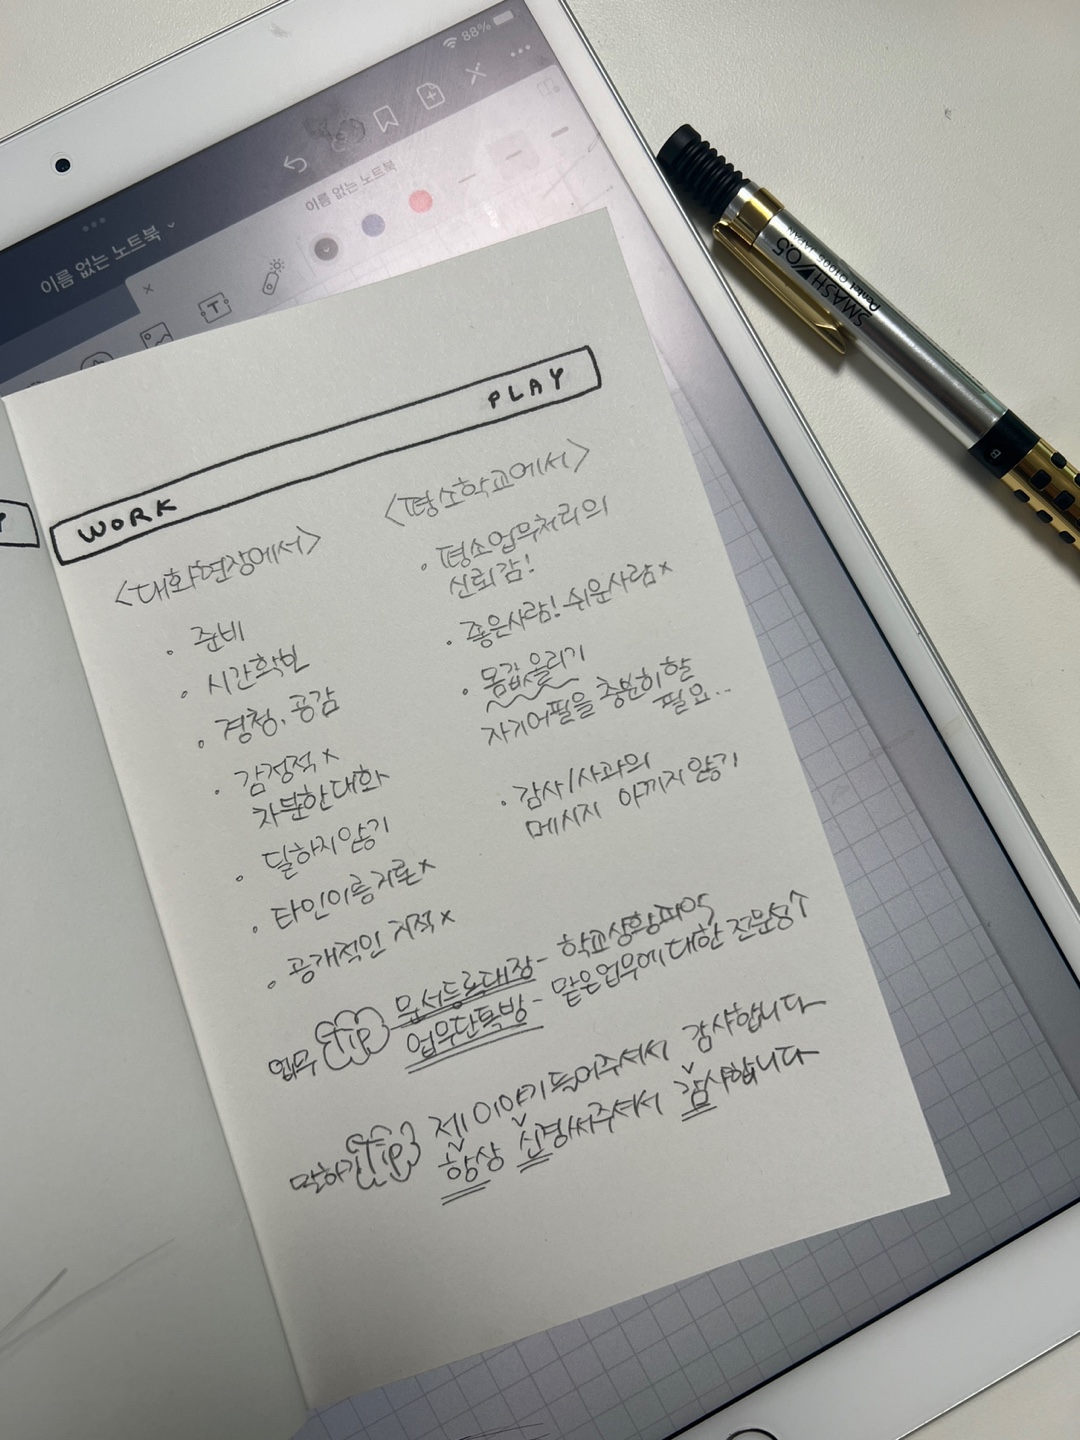 88%
이름 없는 노트북
이름 없는 노트북
T
SMASH 0.5
Pentel Q1005 JAPAN
B
WORK
PLAY
<대화현장에서>
• 준비
• 시간확보
• 경청, 공감
• 감정적 x
차분한 대화
• 탓하지 않기
• 타인이름 거론 x
• 공개적인 지적 x
<평소학교에서>
• 평소업무처리의
신뢰감!
• 좋은사람! 쉬운사람 x
• 몸값올리기
자기어필을 충분히 할
필요..
• 감사/사과의
메시지 아끼지 않기
업무 Tip 문서등록대장 - 학교상황파악
업무단톡방 - 맡은업무에 대한 전문성↑
말하기 Tip 제 이야기 들어주셔서 감사합니다
항상 신경써주셔서 감사합니다